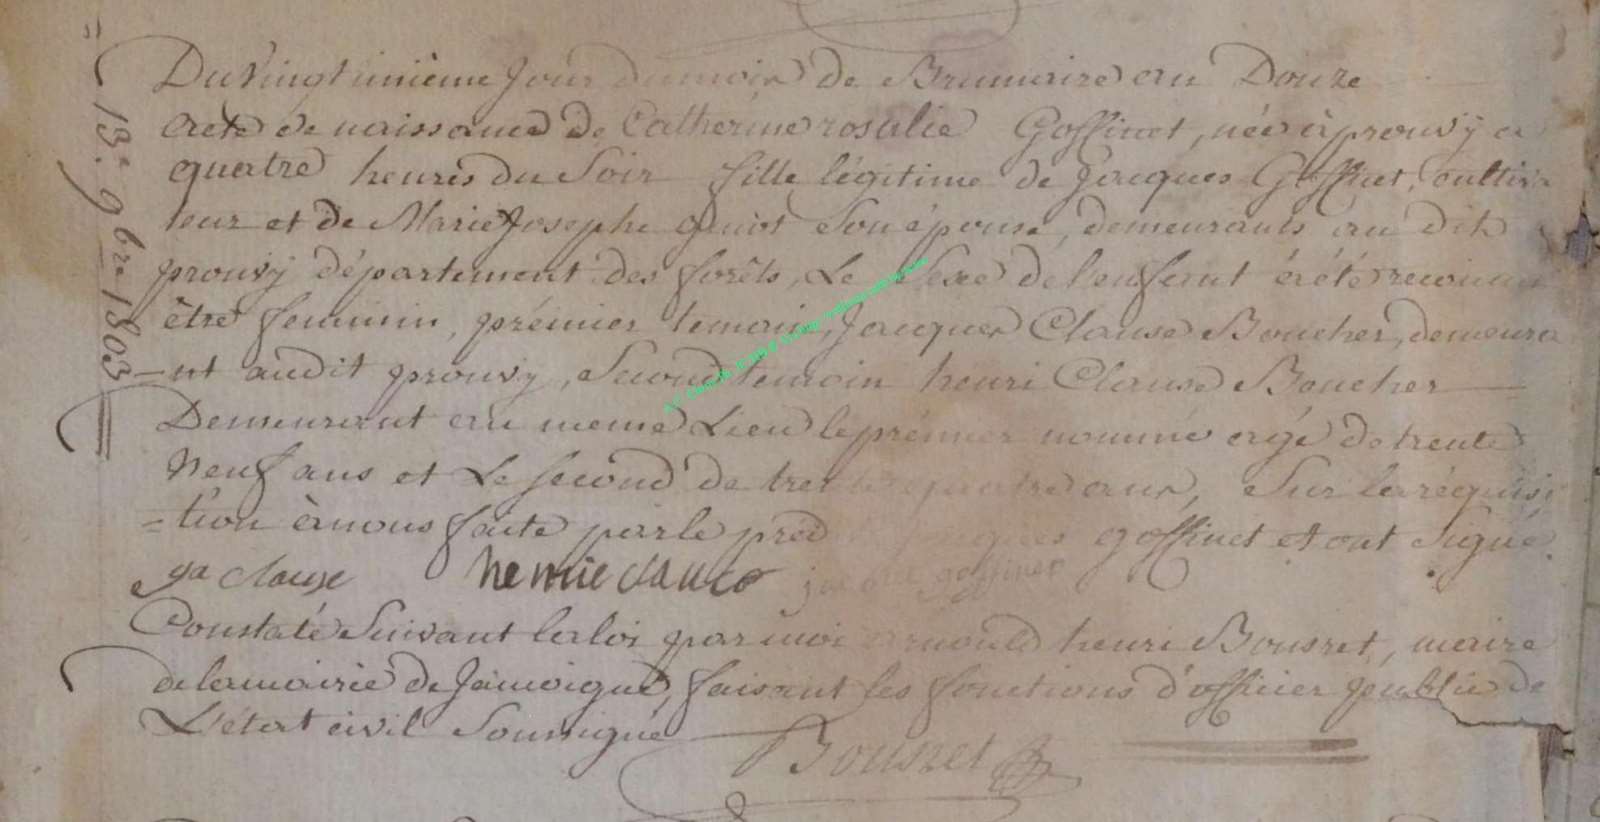 13.e 9bre 1803
Du Vingt unième Jour du mois de Brumaire an Douze
Acte de naissance de Catherine rosalie Goffinet, née à prouvÿ a
quatre heures du Soir fille légitime de Jacques Goffinet, cultiva
teur et de Marie Josephe genot Son épouse, demeurants au dit
prouvÿ département des forêts, Le Sexe de l'enfant à été reconnu
être feminin, prémier temoin, Jacques Clause Boucher, demeura
-nt audit prouvÿ, Second temoin henri Clause Boucher
Demeurant au meme Lieu le prémier nommé agé de trente
neuf ans et Le Second de trente quatre ans, Sur la réquisi
=tion à nous faite par le pred Jacques goffinet et ont Signé.
ja clause henrie clause goffinet
Constaté Suivant la loi par moi arnould henri Bousret, maire
de la mairie de Jamoigne, faisant les fonctions d'officier public de
L'état civil Soussigné
Bousret